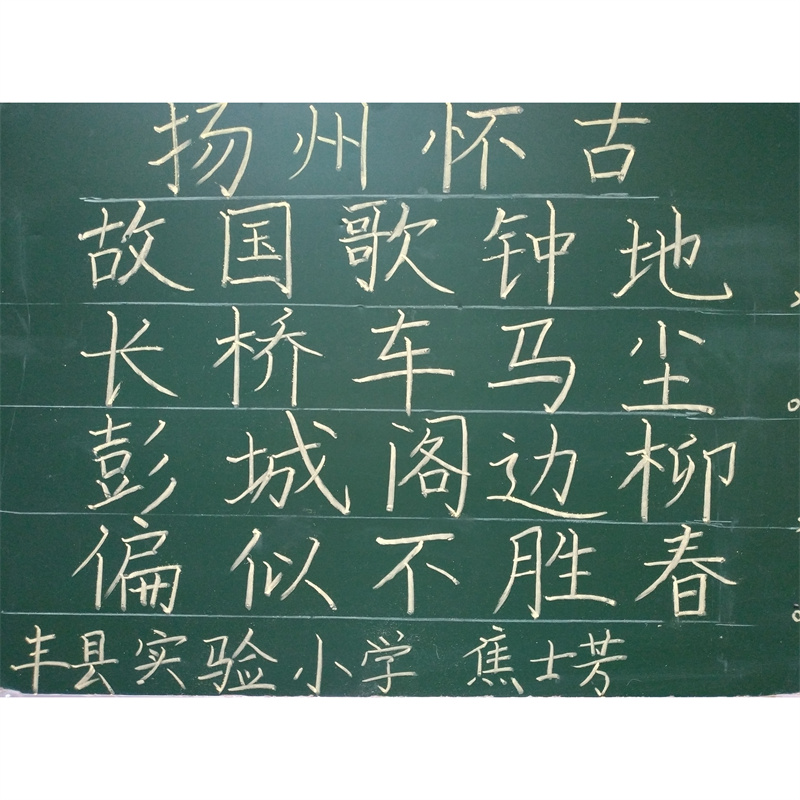 扬州怀古
故国歌钟地
长桥车马尘
彭城阁边柳
偏似不胜春
丰县实验小学 蕉士芳